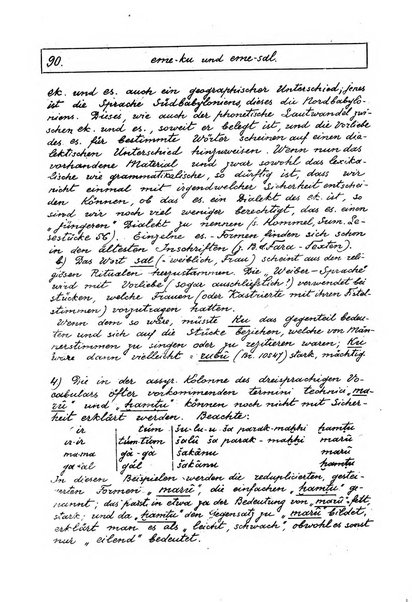 90. eme-ku und eme-sal.
ek. und es. auch ein geographischer Unterschied; jenes
ist die Sprache Südbabyloniens dieses die Nordbabylo-
niens. Dieses, wie auch der phonetische Lautwandel zwi-
schen ek. und es., soweit er belegt ist, und die Vorliebe
des es. für bestimmte Wörter scheinen auf einen dia-
lektischen Unterschied hinzuweisen. Wenn nun das
vorhandene Material und zwar sowohl das lexika-
lische wie grammatikalische, so dürftig ist, dass wir
nicht einmal mit irgendwelcher Sicherheit entschei-
den können, ob das es. ein Dialekt des ek. ist, so
sind wir noch viel weniger berechtigt, das es. einen
"jüngeren" Dialekt zu nennen (s. Hommel, Sum. Le-
sestücke 56). Einzelne es.-Formen finden sich schon
in den ältesten Inschriften (z.B. d. Fara-Texten).
b) Das Wort sal (= weiblich, Frau) scheint aus den reli-
giösen Ritualen herzustammen. Die "Weiber-Sprache"
wird mit Vorliebe (sogar ausschließlich?) verwendet bei
Stücken, welche Frauen (oder Kastrierte mit ihren Fistel-
stimmen) vorzutragen hatten.
Wenn dem so wäre, müsste Ku das gegenteil bedeu-
ten und sich auf die Stücke beziehen, welche von Män-
nerstimmen zu singen oder zu rezitieren waren; Ku
wäre dann vielleicht = rubû (Br. 10547) stark, mächtig
4) Die in der assyr. Kolonne des dreisprachigen Vo-
cabulars öfter vorkommenden termini technici "ma-
rû" und "hamṭu" können noch nicht mit Sicher-
heit erklärt werden. Beachte:
ir túm šu-lu-u ša parak-mahhi hamṭu
ir-ir túm-túm šalû ša parak-mahhi marû
ma-ma gá-gá šakânu marû
ga-al gál šakânu hamṭu
In diesen Beispielen werden die reduplicierten, gestei-
erten Formen "marû", die einfachen "hamṭu" ge-
nannt; das passt in etwa zu der Bedeutung von "marû" fett,
stark; und da "hamṭu" den Gegensatz zu "marû" bildet,
erklärt man es als "leicht, schwach" obwohl es sonst
nur "eilend" bedeutet.